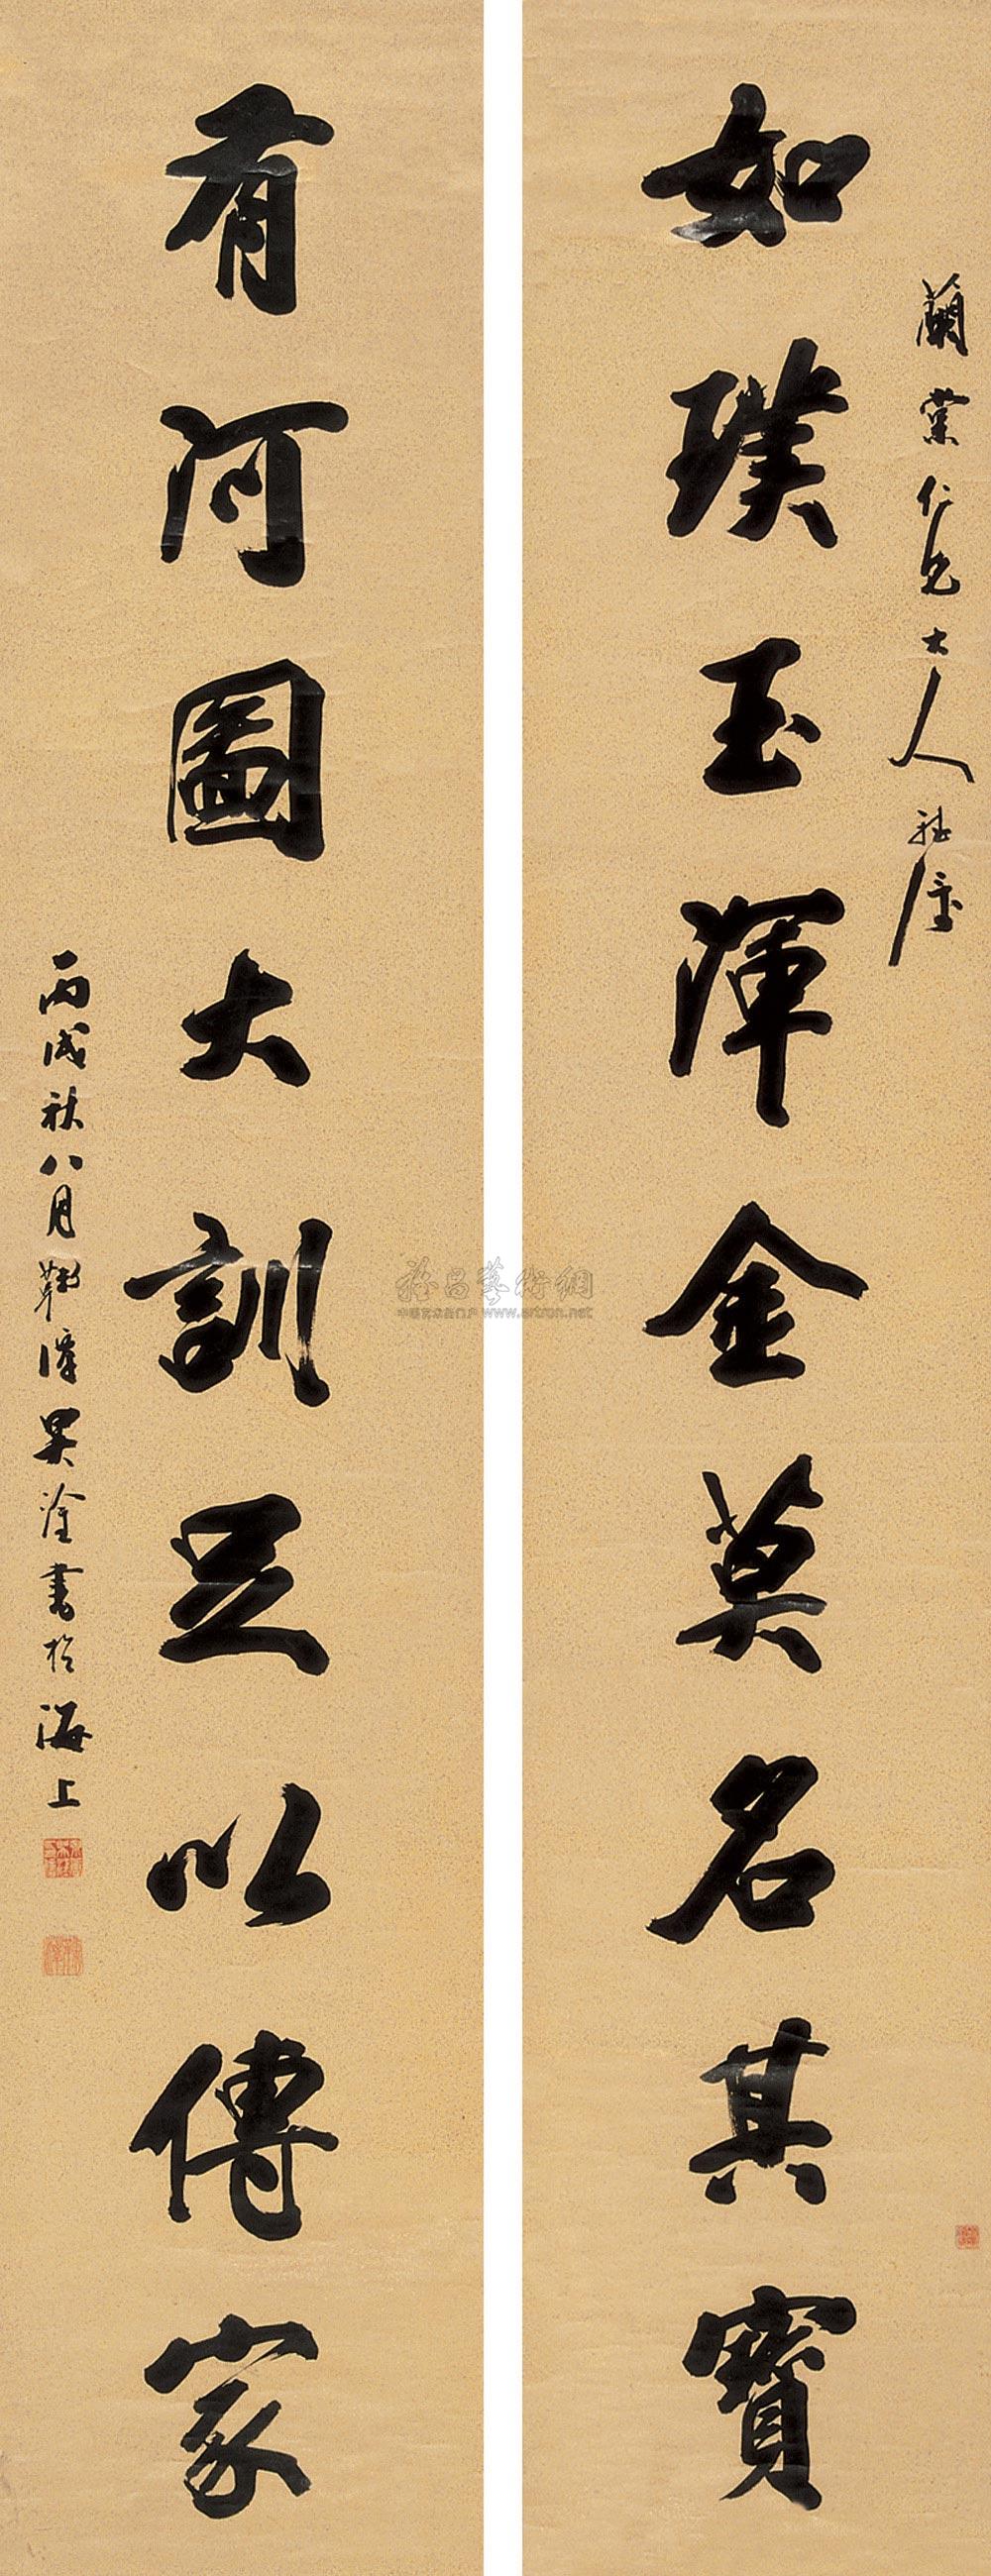 如璞玉渾金莫名其寶
蘭棠仁兄大人雅鑒
有河圖大訓足以傳家
丙戌秋八月鞠潭吳淦書於海上
雅昌藝術網
www.artron.net